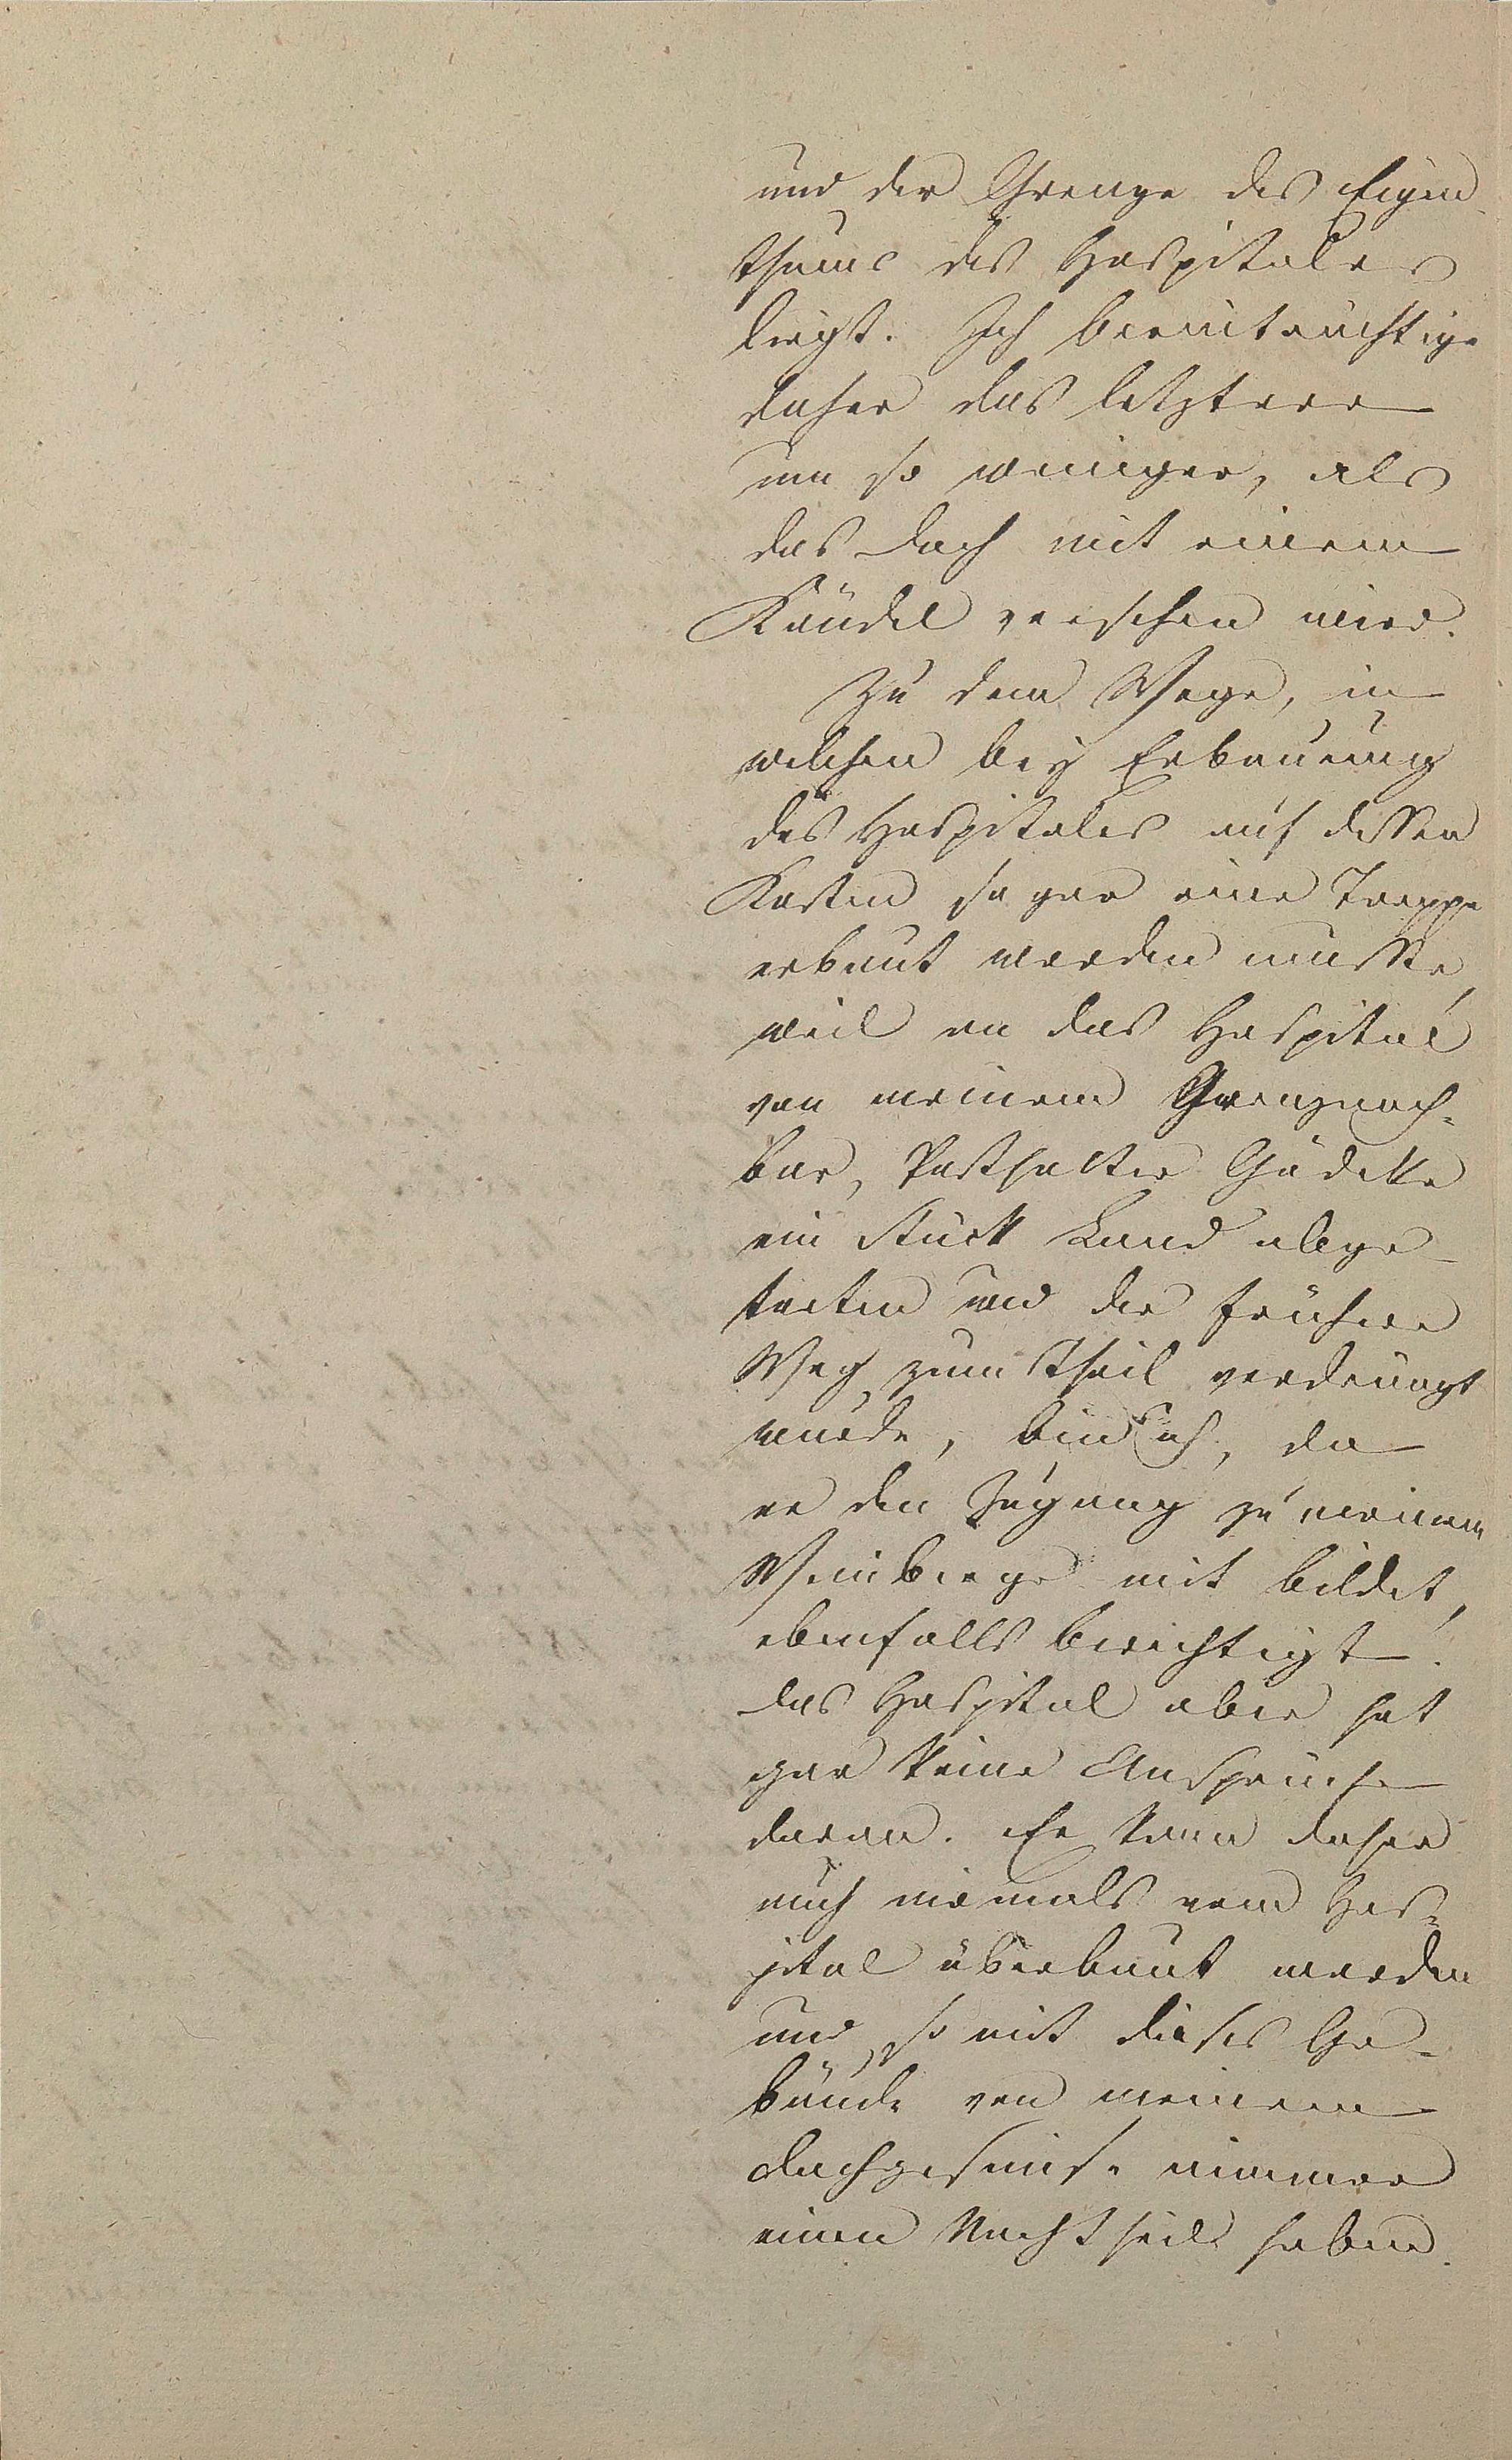 und der Grenze des Eigen
thums des Hospitales
liegt. Ich beeinträchtige
daher das letztere
um so weniger, als
das Dach mit einem
Kändel versehen wird.
Zu dem Wege, in
welchen bey Erbauung
des Hospitales auf dessen
Kosten sogar eine Treppe
erbaut werden musste,
weil an das Hospital
von meinem Grenznach-
bar, Posthalter Gädecke
ein Stück Land abge-
treten und der frühere
Weg zum Theil verdrängt
wurde, bin ich, da
er den Zugang zu meinem
Weinberge mit bildet,
ebenfalls berechtigt.
Das Hospital aber hat
gar keine Ansprüche
daran. Er kann daher
auch niemals vom Hos-
pital überbaut werden
und somit dieses Ge-
bäude von meinem
Dachgesimse nimmer
einen Nachtheil haben.